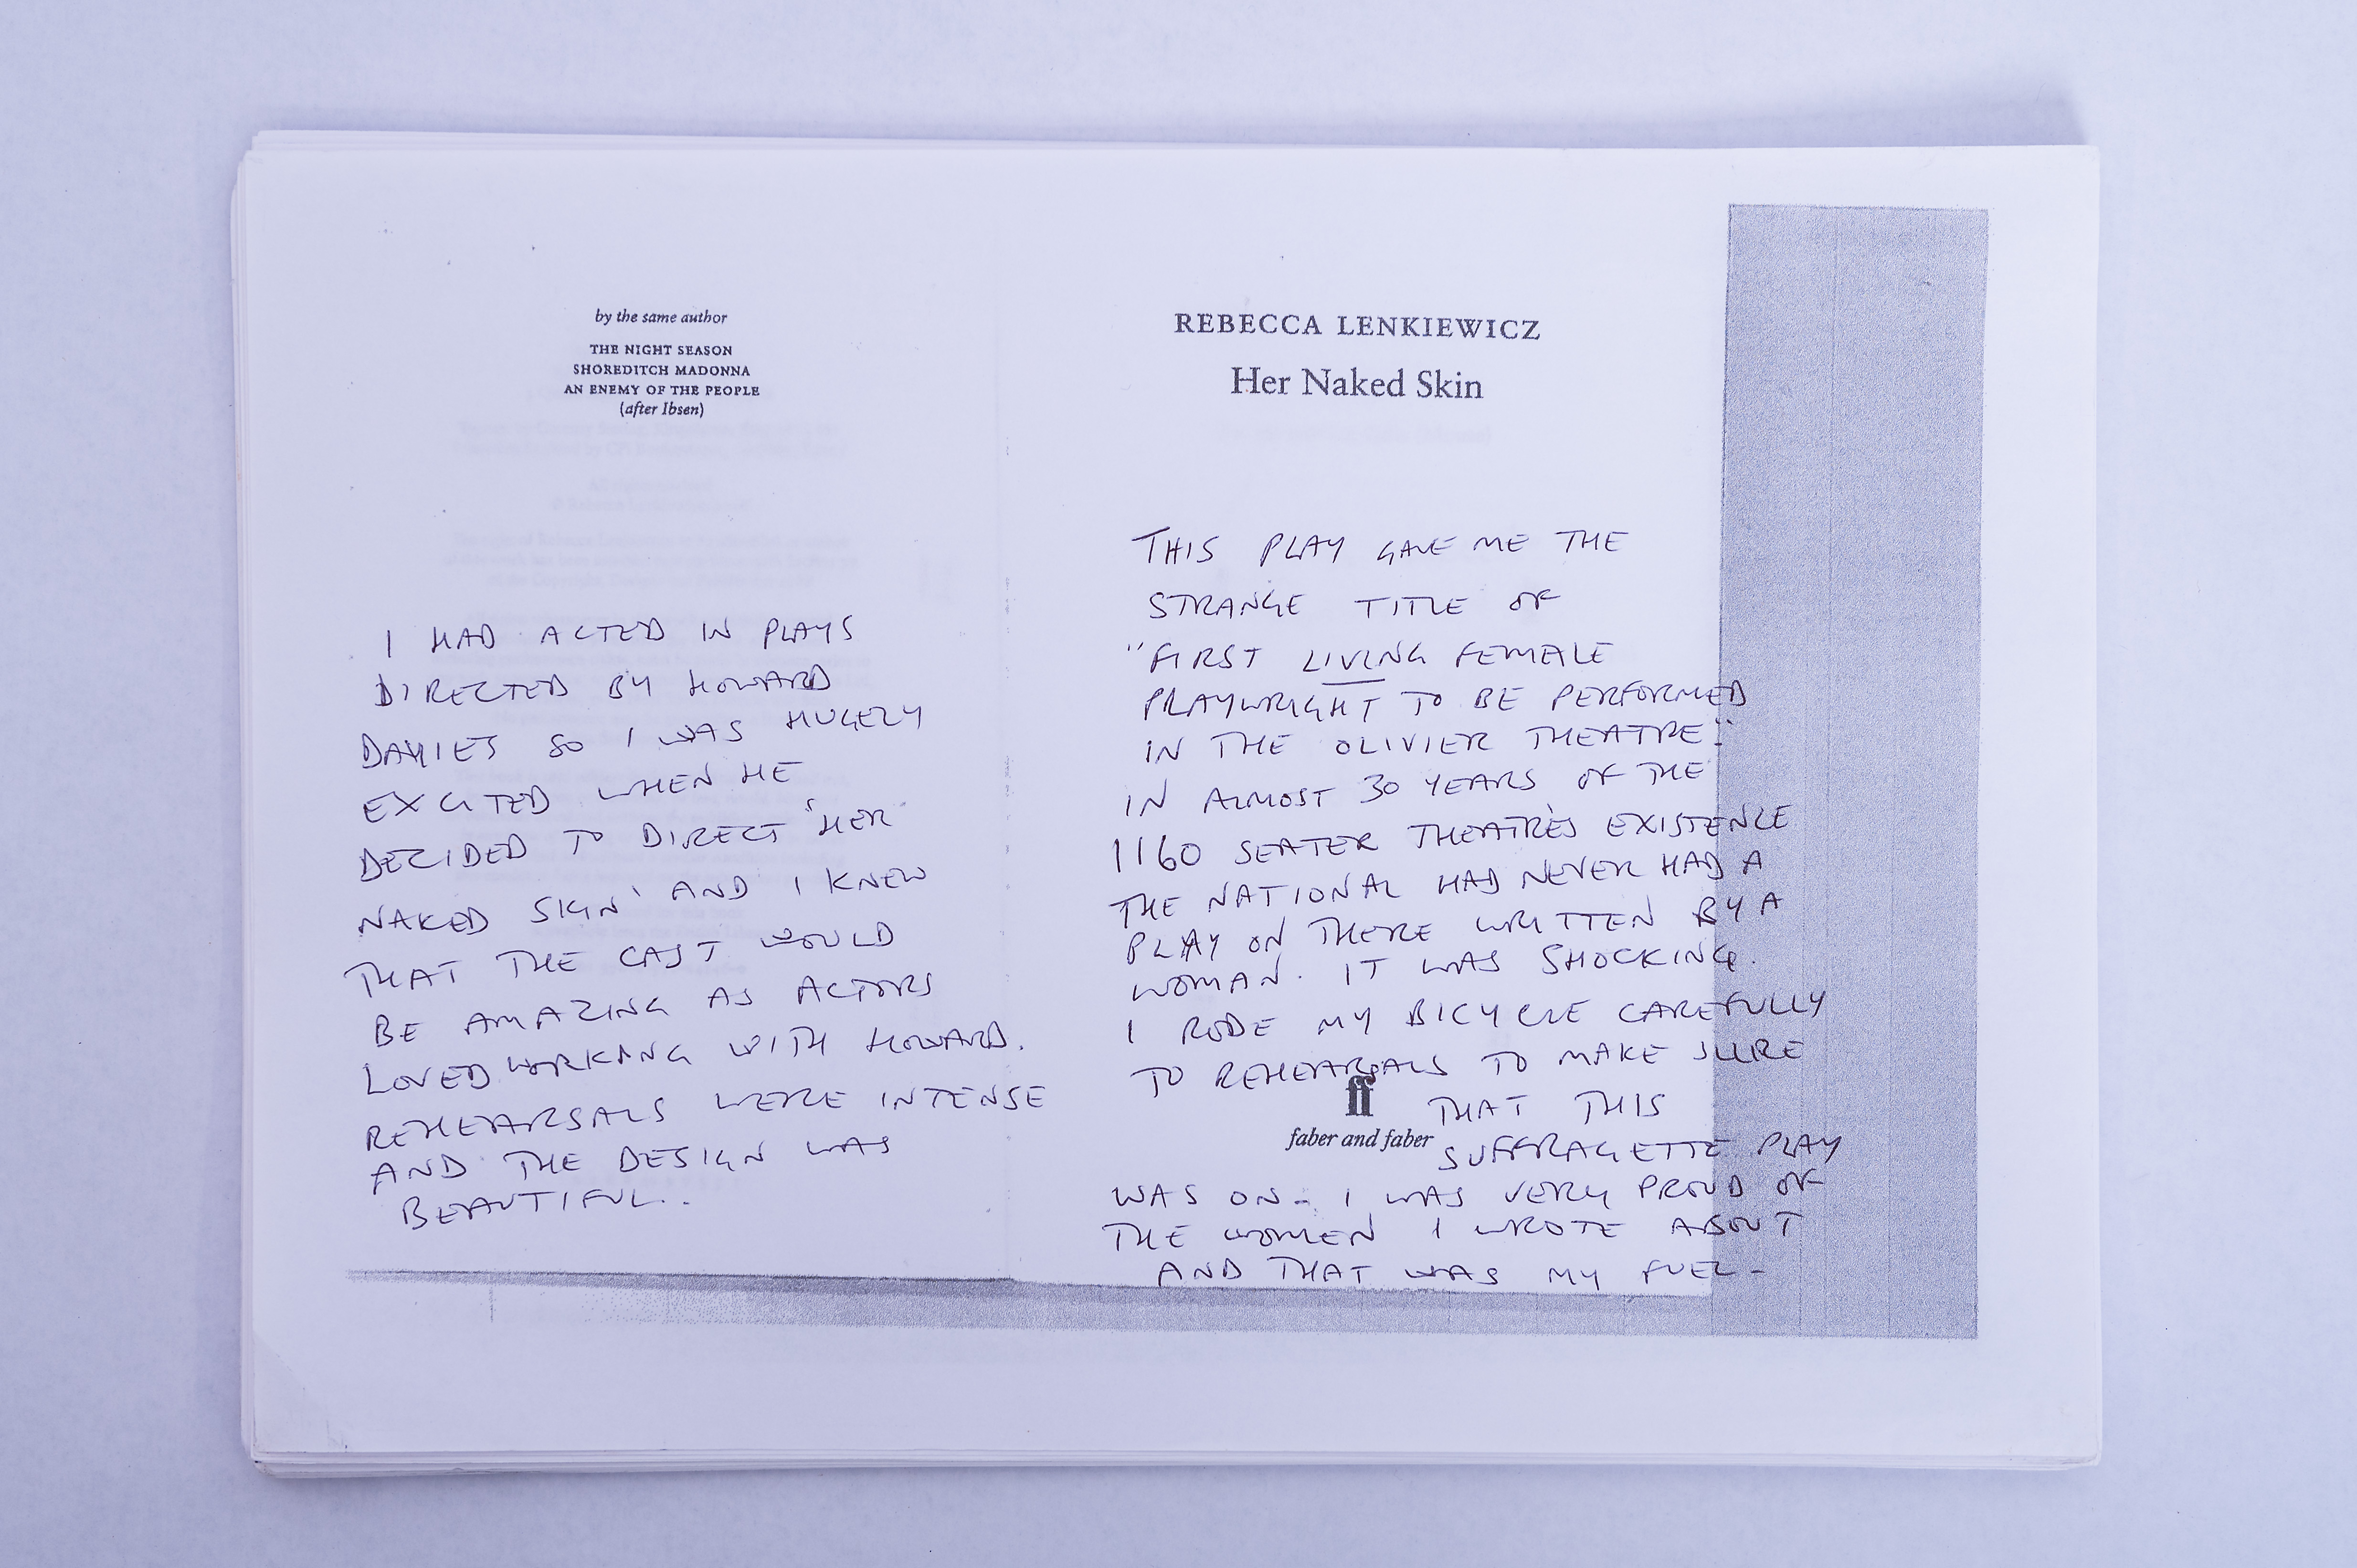 by the same author
THE NIGHT SEASON
SHOREDITCH MADONNA
AN ENEMY OF THE PEOPLE
(after Ibsen)
I HAD ACTED IN PLAYS
DIRECTED BY HOWARD
DAVIES SO I WAS HUGELY
EXCITED WHEN HE
DECIDED TO DIRECT 'HER
NAKED SKIN' AND I KNEW
THAT THE CAST WOULD
BE AMAZING AS ACTORS
LOVED WORKING WITH HOWARD.
REHEARSALS WERE INTENSE
AND THE DESIGN WAS
BEAUTIFUL..
REBECCA LENKIEWICZ
Her Naked Skin
THIS PLAY GAVE ME THE
STRANGE TITLE OF
"FIRST LIVING FEMALE
PLAYWRIGHT TO BE PERFORMED
IN THE OLIVIER THEATRE."
IN ALMOST 30 YEARS OF THE
1160 SEATER THEATRE'S EXISTENCE
THE NATIONAL HAD NEVER HAD A
PLAY ON THERE WRITTEN BY A
WOMAN. IT WAS SHOCKING.
I RODE MY BICYCLE CAREFULLY
TO REHEARSALS TO MAKE SURE
ff
THAT THIS
faber and faber
SUFFRAGETTE PLAY
WAS ON - I WAS VERY PROUD OF
THE WOMEN I WROTE ABOUT
AND THAT WAS MY FUEL -